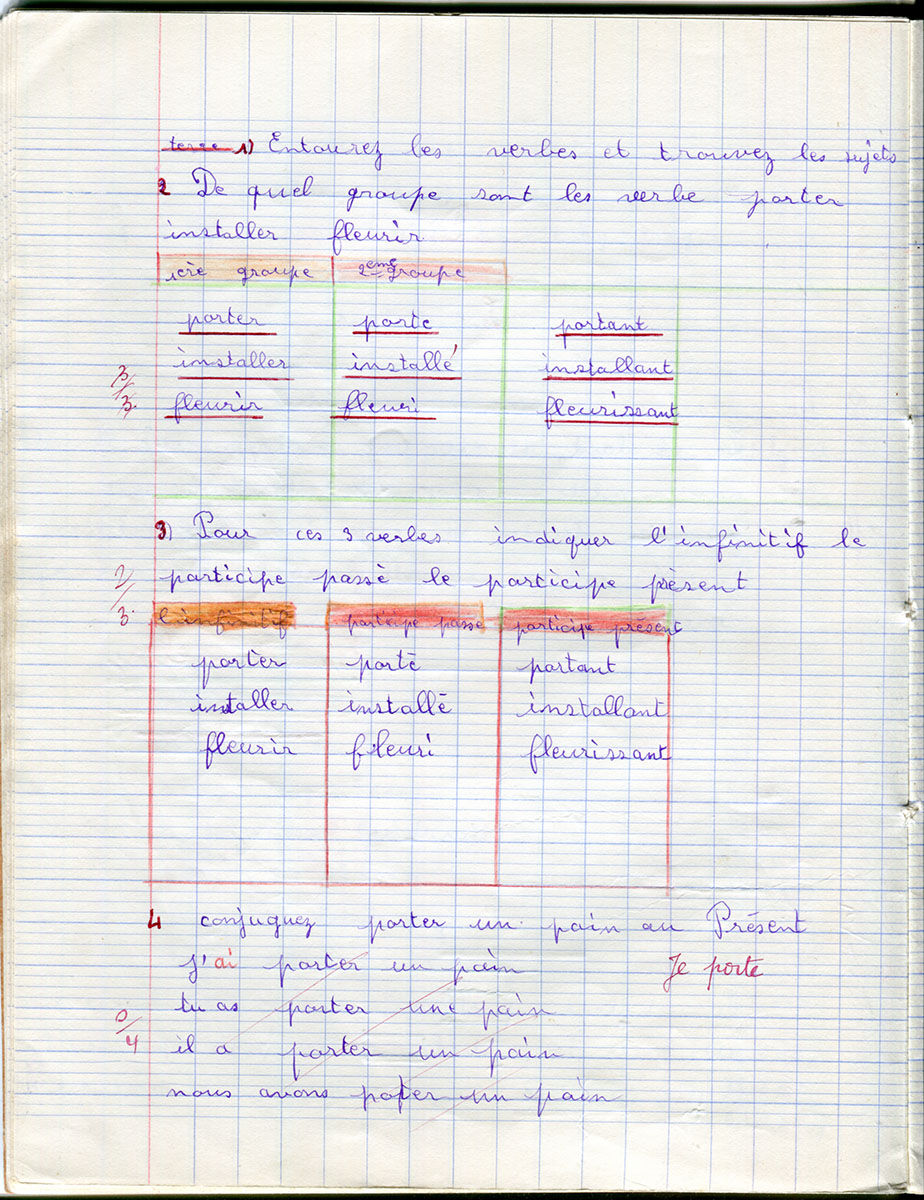 terse 1) Entourez les verbes et trouvez les sujets
2 De quel groupe sont les verbe porter
installer fleurir
1ère groupe 2ème groupe
porter porte portant
installer installé installant
3/3 fleurir fleuri fleurissant
3) Pour ces 3 verbes indiquer l'infinitif le
2/3 participe passè le participe prèsent
l'infinitif participe passé participe présent
porter porté portant
installer installé installant
fleurir fleuri fleurissant
4 conjuguez porter un pain au Présent
j'ai porter un pain Je porte
tu as porter une pain
0/4 il a porter un pain
nous avons porter un pain